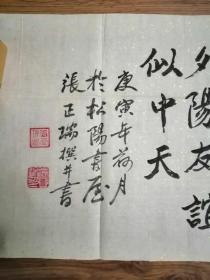 夕陽友誼
似中天
庚寅年荷月
於松陽書屋
張正瑞撰并書